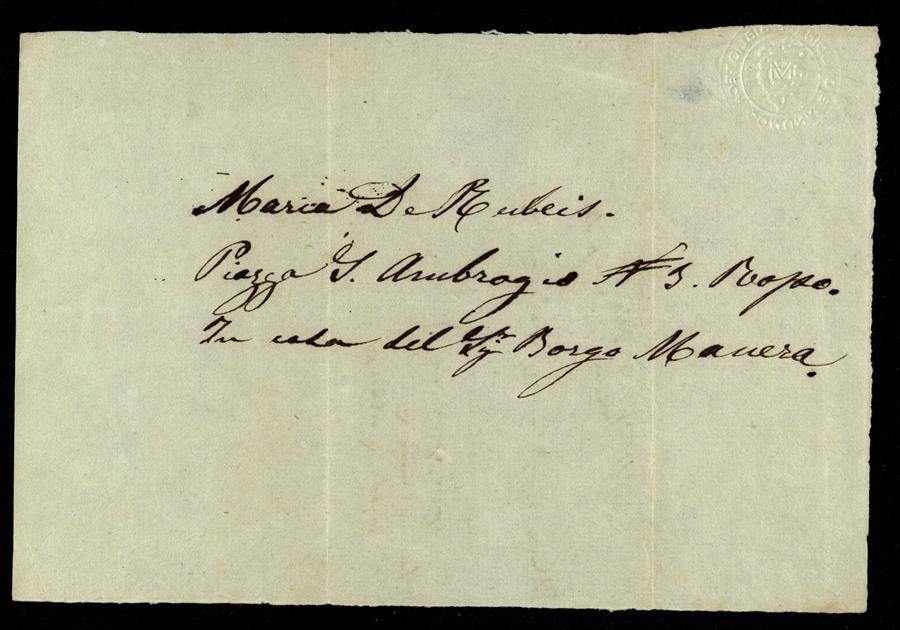 Maria De Rubeis.
Piazza S. Ambrogio N 3. Rosso.
In casa del Sigr Borgo Manera.